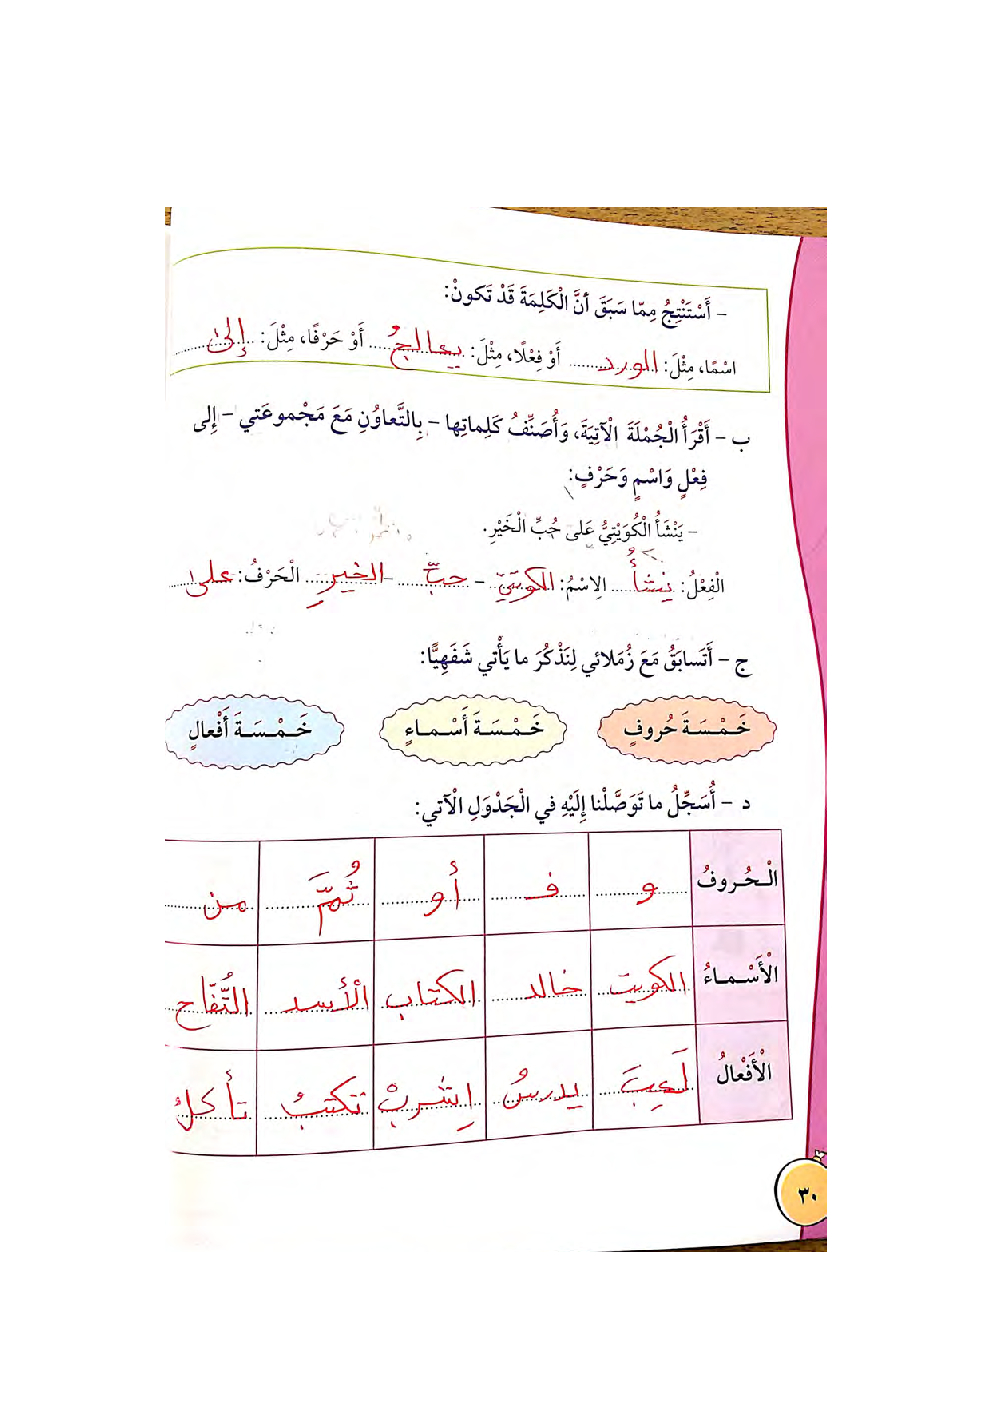 - أَسْتَنْتِجُ مِمّا سَبَقَ أَنَّ الْكَلِمَةَ قَدْ تَكونُ:
اسْمًا، مِثْلَ: الورد أَوْ فِعْلًا، مِثْلَ: يعالجُ أَوْ حَرْفًا، مِثْلَ: إلى
ب - أَقْرَأُ الْجُمْلَةَ الْآتِيَةَ، وَأُصَنِّفُ كَلِماتِها - بِالتَّعاوُنِ مَعَ مَجْموعَتي - إِلى
فِعْلٍ وَاسْمٍ وَحَرْفٍ:
- يَنْشَأُ الْكُوَيْتِيُّ عَلى حُبِّ الْخَيْرِ.
الْفِعْلُ: ينشأُ الِاسْمُ: الكويتيّ - حبّ - الخيرِ الْحَرْفُ: على
ج - أَتَسابَقُ مَعَ زُمَلائي لِنَذْكُرَ ما يَأْتي شَفَهِيًّا:
خَمْسَةَ حُروفٍ خَمْسَةَ أَسْماءٍ خَمْسَةَ أَفْعالٍ
د - أُسَجِّلُ ما تَوَصَّلْنا إِلَيْهِ في الْجَدْوَلِ الْآتي:
الْحُروفُ و ف أو ثُمَّ من
الْأَسْماءُ الكويت خالد الكتاب الْأسد التُّفّاح
الْأَفْعالُ لَعِبَ يدرسُ اِشربْ تكتبُ تأكلُ
٣٠